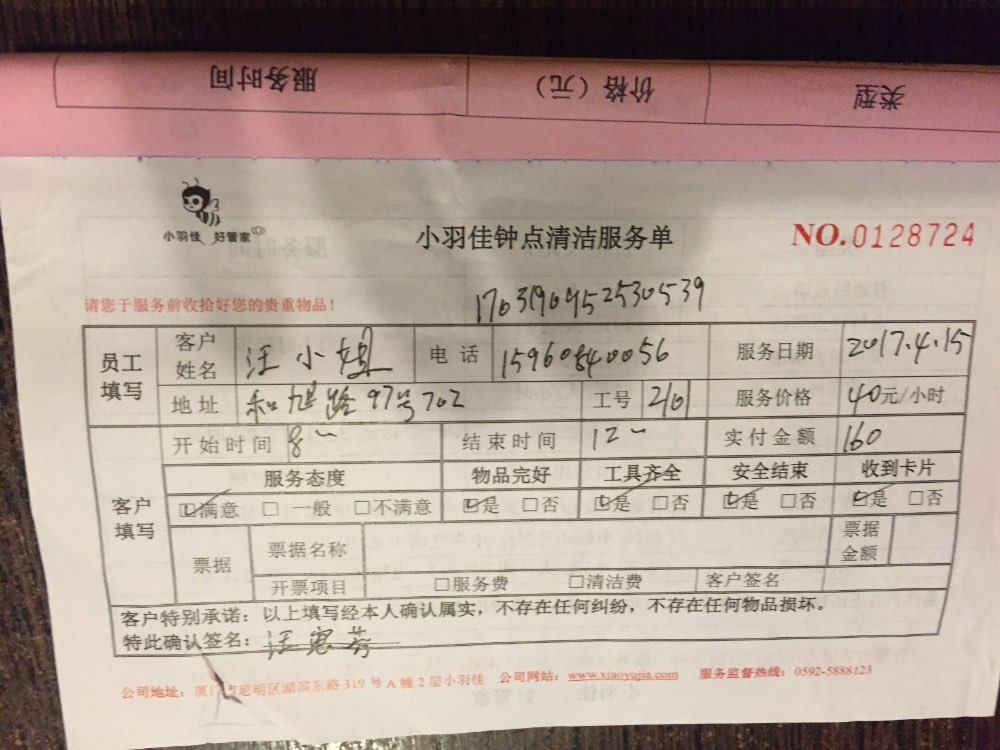 服务时间 价格（元） 类型
小羽佳 好管家
小羽佳钟点清洁服务单
NO.0128724
请您于服务前收拾好您的贵重物品！
1763196952530539
员工填写 客户姓名 汪小姐 电话 15960840056 服务日期 2017.4.15
地址 和旭路97号702 工号 2101 服务价格 40元/小时
客户填写 开始时间 8~ 结束时间 12~ 实付金额 160
服务态度 物品完好 工具齐全 安全结束 收到卡片
☑满意 □一般 □不满意 ☑是 □否 ☑是 □否 ☑是 □否 ☑是 □否
票据 票据名称 票据金额
开票项目 □服务费 □清洁费 客户签名
客户特别承诺：以上填写经本人确认属实，不存在任何纠纷，不存在任何物品损坏。
特此确认签名：汪
公司地址：厦门市思明区湖滨东路319号A幢2层小羽佳 公司网站：www.xiaoyujia.com 服务监督热线：0592-5888123